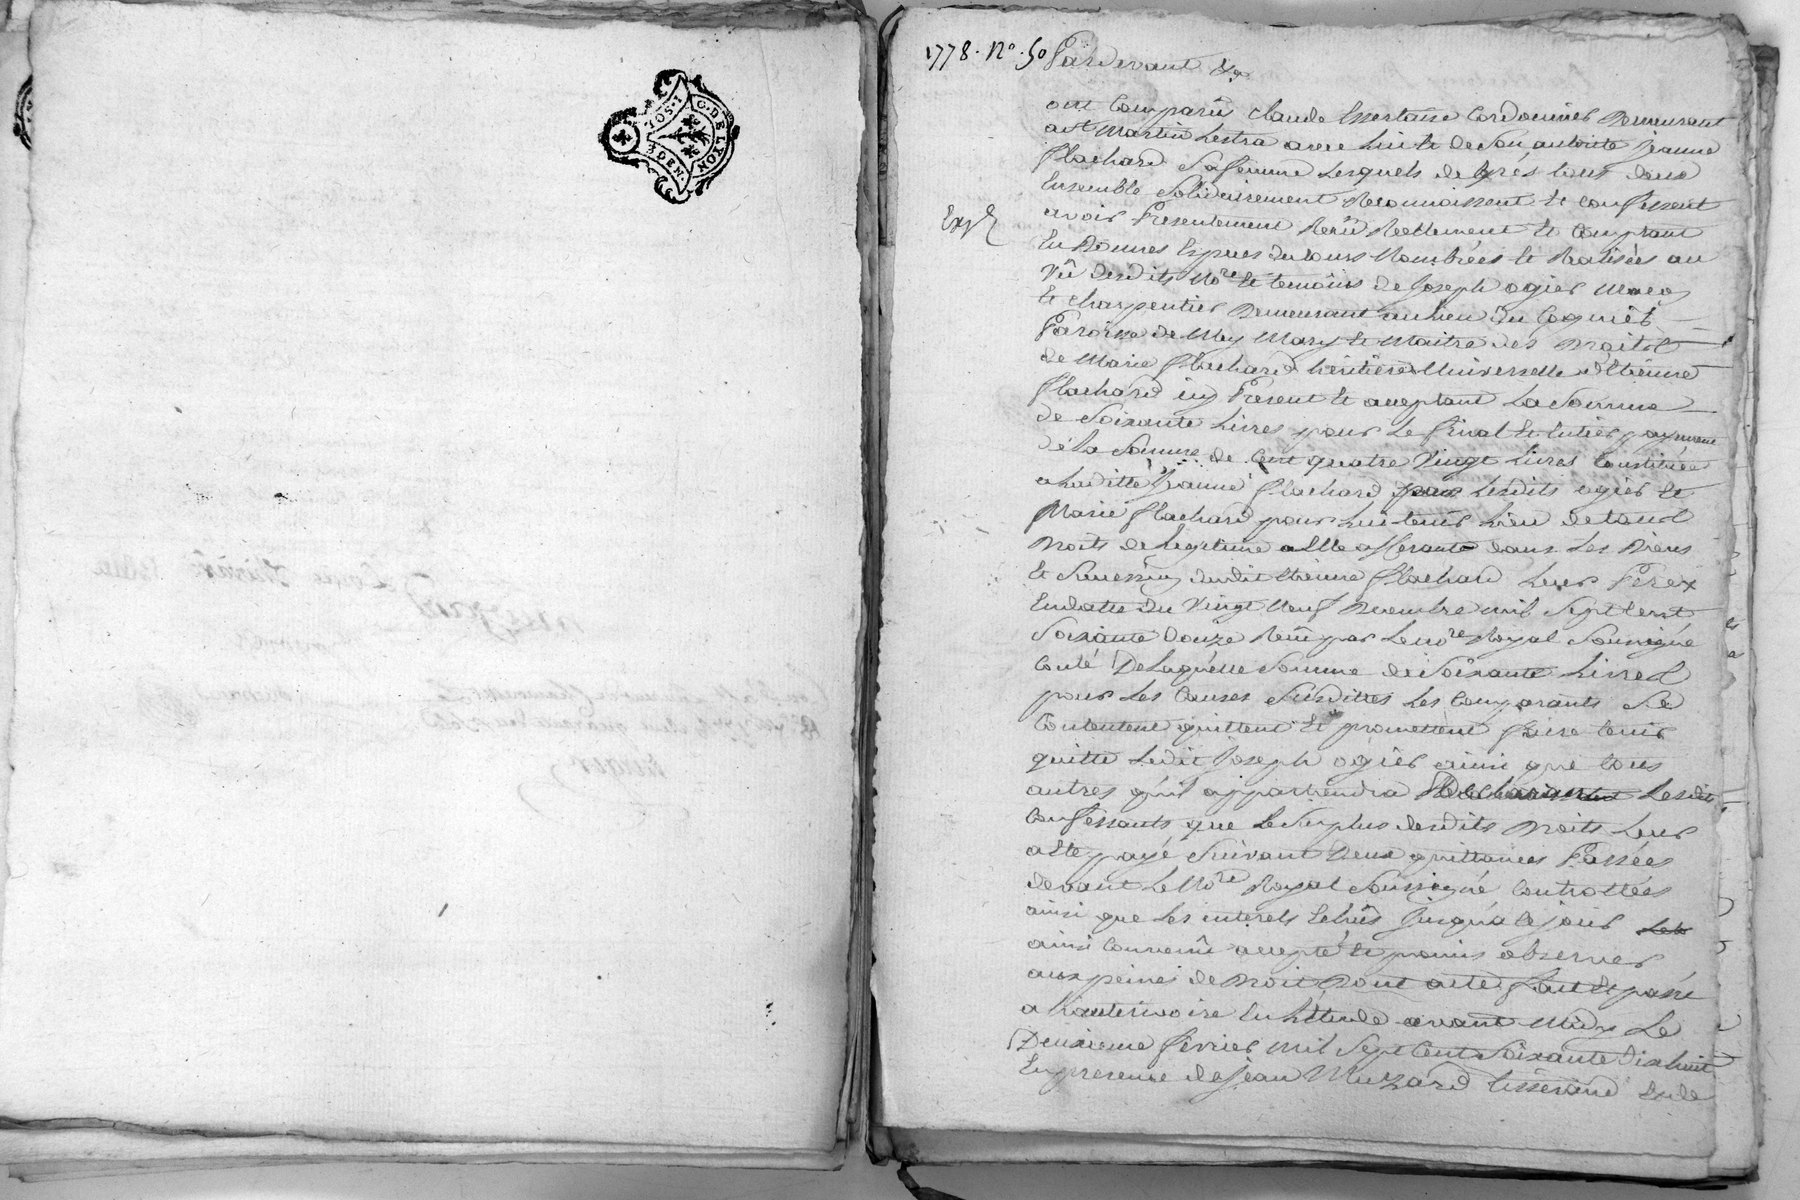 G. DE LYON
3 DEN.
1778. No. 50
Pardevant &a
ont Comparû claude Cordonnier Demeurant
a St Martin Lestra avec luy et de Son autorité Jeanne
flachard Sa femme Lesquels de Grés tous deux
Ensemble Solidairement Reconnoissent et Confessent
Expé
avoir Presentement Recû Réellement et Comptant
En Bonnes Espèces du Cours Nombrées et Realisées au
Vû desdits Nore et temoins de Joseph ogier
et charpentier Demeurant au lieu du
Paroisse de Mary et Maitre des Droits
de Marie flachard héritière Universelle d'Etienne
flachard icy Present et acceptant La Somme
de Soixante Livres pour Le final et Entier payement
de la Somme de Cent quatre Vingt Livres Constituée
a Laditte Jeanne flachard par Lesdits ogier et
Marie flachard pour luy tenir Lieu de tous
Droits de Legitime a Elle afferante dans Les Biens
et Succession dudit Etienne flachard Leur Pere
En datte du Vingt Neuf Decembre mil Sept Cent
Soixante Douze Recû par Le nore Royal Soussigné
Conlé De Laquelle Somme de Soixante Livres
pour Les Causes Susdittes Les Comparants Se
Contentent quittent et promettent faire tenir
quitte Ledit Joseph ogier ainsi que tous
autres qu'il appartiendra Declarant Lesdits
Confessants que Le Surplus desdits Droits Leur
a Eté payé Suivant Deux quittances Passées
devant Le Nore Royal Soussigné Controllées
ainsi que Les interets Echûs Jusqu'a Ce jour
ainsi Convenû accepté et promis observer
aux peines de Droit Dont acte fait et passé
a hauterivoire En L'étude avant Midy Le
Deuxieme fevrier Mil Sept Cent Soixante Dix huit
En presence de Jean Muzard tisserand et de